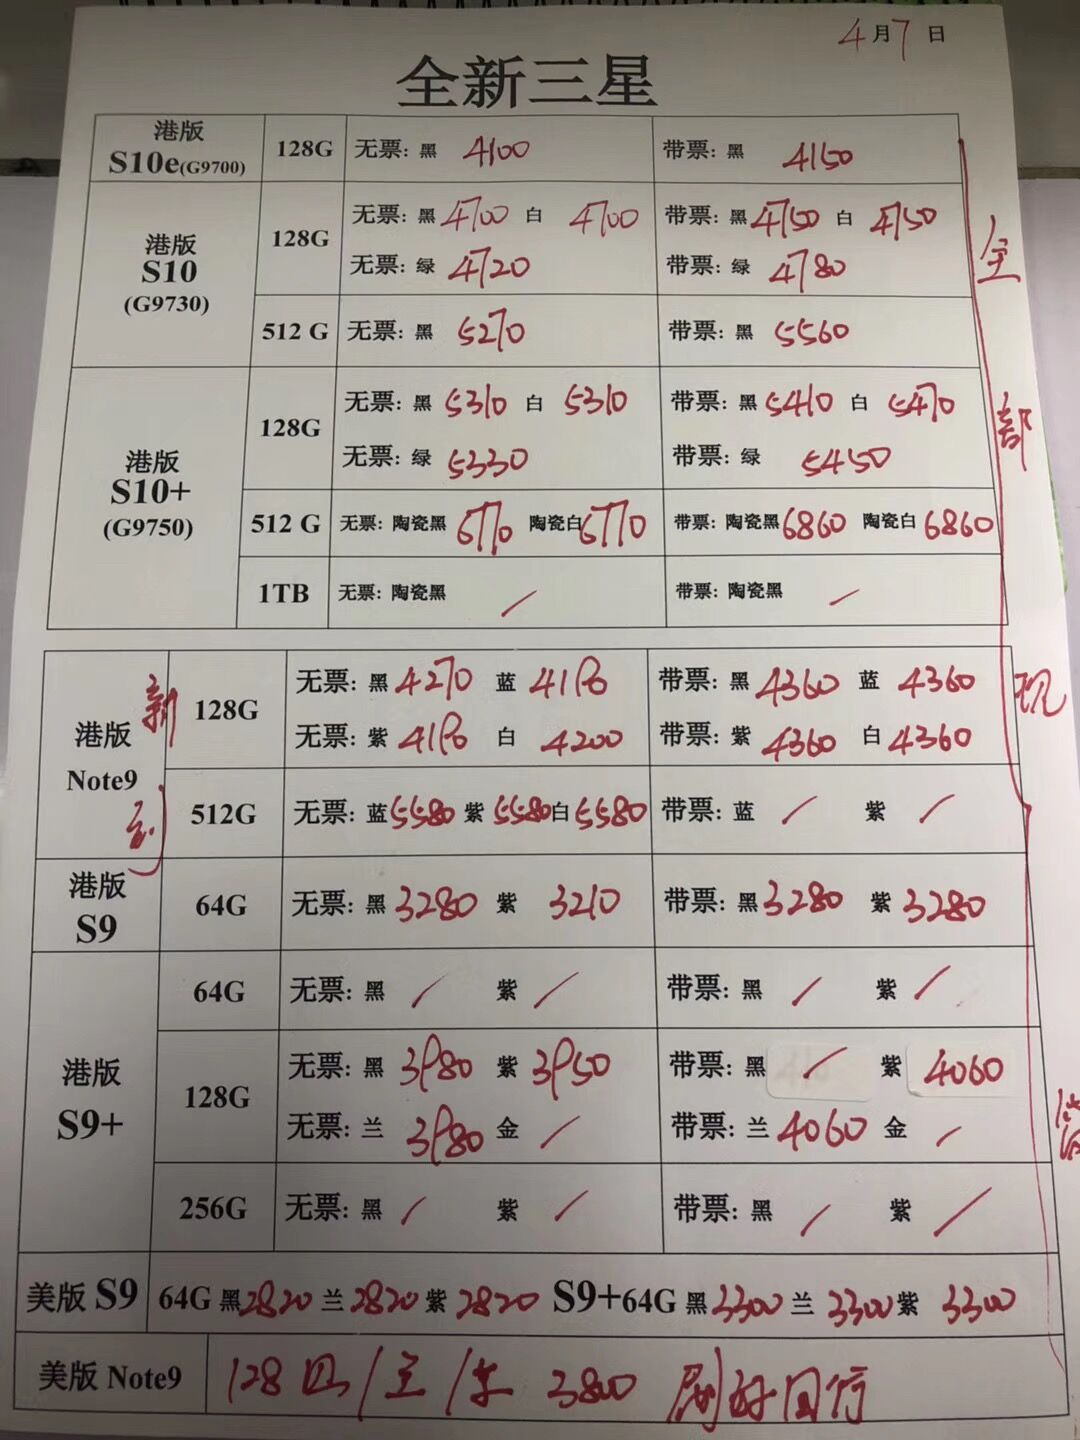 4月7日
全新三星
港版 S10e(G9700) 128G 无票: 黑 4100 带票: 黑 4150
港版 S10 (G9730) 128G 无票: 黑 4700 白 4700 带票: 黑 4750 白 4750
无票: 绿 4720 带票: 绿 4780
512 G 无票: 黑 5270 带票: 黑 5560
港版 S10+ (G9750) 128G 无票: 黑 5310 白 5310 带票: 黑 5410 白 5470
无票: 绿 5330 带票: 绿 5450
512 G 无票: 陶瓷黑 6770 陶瓷白 6770 带票: 陶瓷黑 6860 陶瓷白 6860
1TB 无票: 陶瓷黑 / 带票: 陶瓷黑 /
全部现货
港版 Note9 新到 128G 无票: 黑 4270 蓝 4190 带票: 黑 4360 蓝 4360
无票: 紫 4190 白 4200 带票: 紫 4360 白 4360
512G 无票: 蓝 5580 紫 5580 白 5580 带票: 蓝 / 紫 /
港版 S9 64G 无票: 黑 3280 紫 3210 带票: 黑 3280 紫 3280
港版 S9+ 64G 无票: 黑 / 紫 / 带票: 黑 / 紫 /
128G 无票: 黑 3980 紫 3950 带票: 黑 / 紫 4060
无票: 兰 3980 金 / 带票: 兰 4060 金 /
256G 无票: 黑 / 紫 / 带票: 黑 / 紫 /
美版 S9 64G 黑 2820 兰 2820 紫 2820 S9+64G 黑 3300 兰 3300 紫 3300
美版 Note9 128 3800 刷好国行